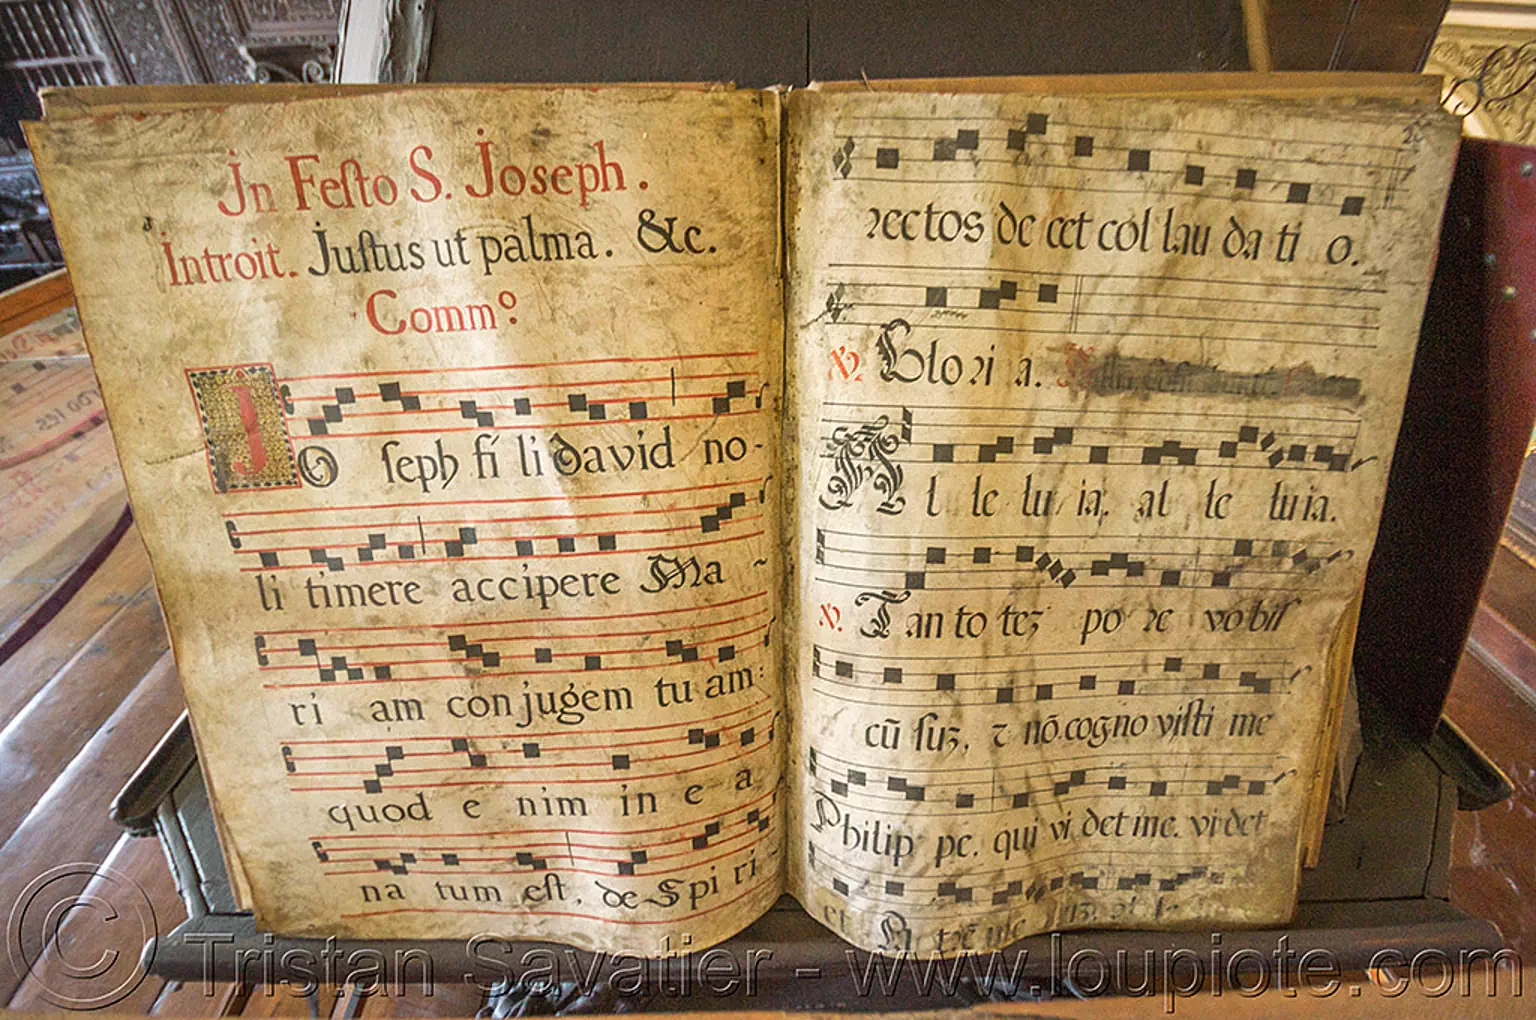 Jn Feſto S. Joseph.
Introit. Juſtus ut palma. &c.
Comm.º
JO ſeph fi li david no-
li timere accipere Ma ~
ri am conjugem tu am:
quod e nim in e a
na tum eſt, de Spi ri
rectos de cet col lau da ti o.
℣. Glo ri a.
A l le lu ia, al le lu ia.
℣. Tan to tez po re vo biſ
cũ ſuz, ⁊ nõ cogno viſti me
Philip pe. qui vi det me. vi det
et
© Tristan Savatier - www.loupiote.com